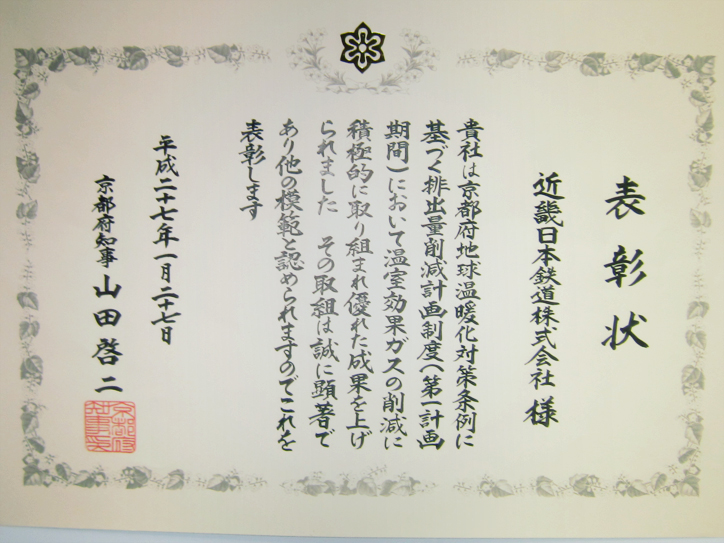 表彰状
近畿日本鉄道株式会社 様
貴社は京都府地球温暖化対策条例に
基づく排出量削減計画制度（第一計画
期間）において温室効果ガスの削減に
積極的に取り組まれ優れた成果を上げ
られました その取組は誠に顕著で
あり他の模範と認められますのでこれを
表彰します
平成二十七年一月二十七日
京都府知事 山田啓二
京都府知事印